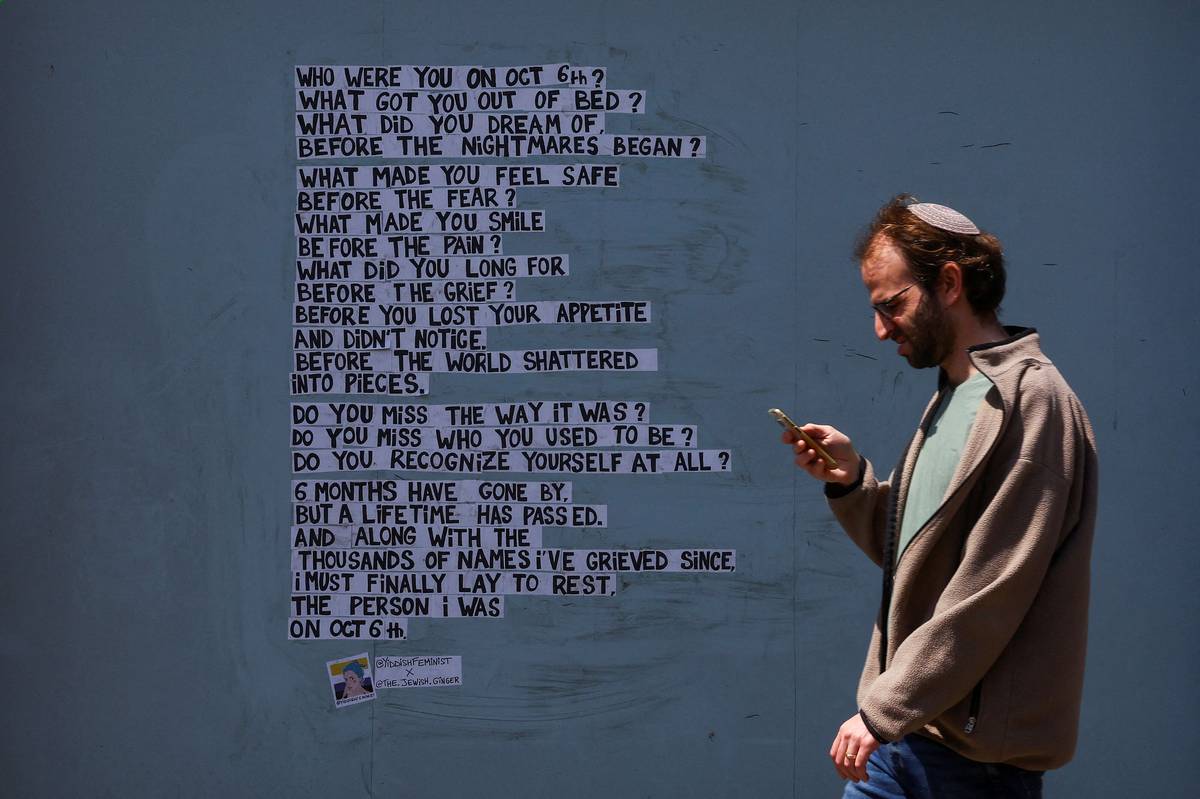 WHO WERE YOU ON OCT 6th?
WHAT GOT YOU OUT OF BED?
WHAT DiD YOU DREAM OF,
BEFORE THE NiGHTMARES BEGAN?
WHAT MADE YOU FEEL SAFE
BEFORE THE FEAR?
WHAT MADE YOU SMiLE
BEFORE THE PAiN?
WHAT DiD YOU LONG FOR
BEFORE THE GRiEF?
BEFORE YOU LOST YOUR APPETiTE
AND DiDN'T NOTiCE.
BEFORE THE WORLD SHATTERED
iNTO PiECES.
DO YOU MiSS THE WAY iT WAS?
DO YOU MiSS WHO YOU USED TO BE?
DO YOU RECOGNiZE YOURSELF AT ALL?
6 MONTHS HAVE GONE BY,
BUT A LiFETiME HAS PASSED.
AND ALONG WiTH THE
THOUSANDS OF NAMES i'VE GRiEVED SiNCE,
i MUST FiNALLY LAY TO REST,
THE PERSON i WAS
ON OCT 6th.
@YiDDiSHFEMiNiST
X
@THE.JEWiSH.GiNGER